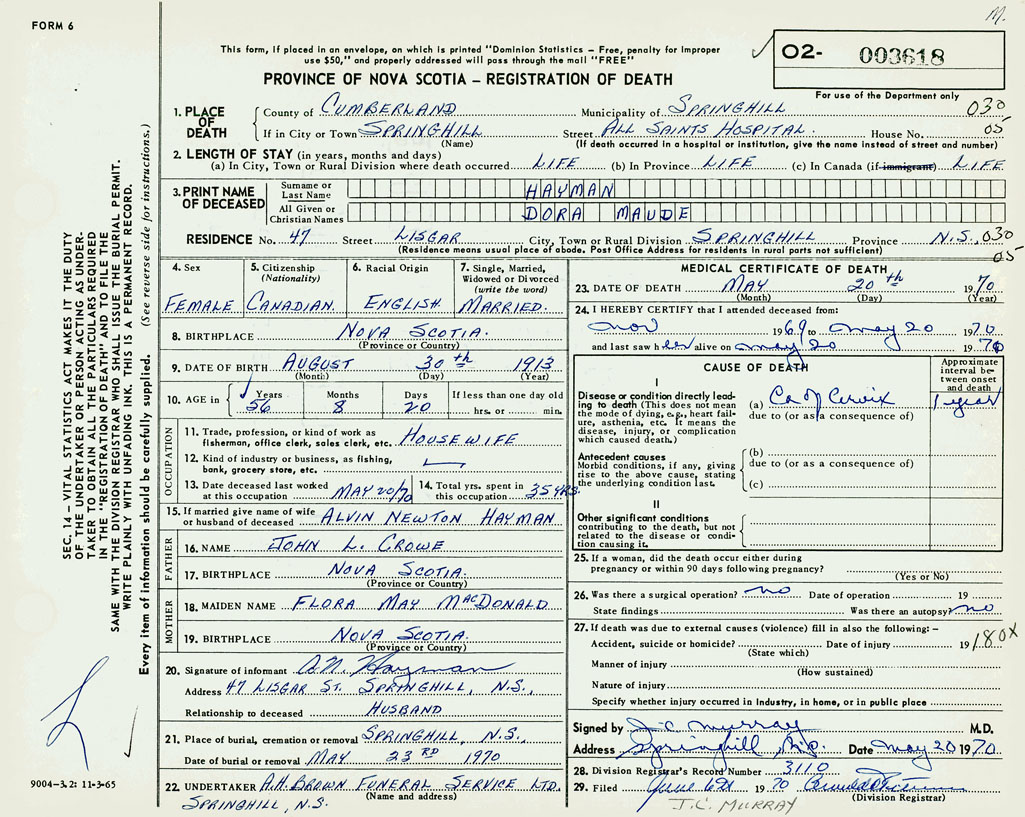 FORM 6
M.
This form, if placed in an envelope, on which is printed "Dominion Statistics – Free, penalty for improper
use $50," and properly addressed will pass through the mail "FREE"
PROVINCE OF NOVA SCOTIA – REGISTRATION OF DEATH
02- 003618
For use of the Department only
1. PLACE OF DEATH
County of CUMBERLAND Municipality of SPRINGHILL 030
If in City or Town SPRINGHILL Street ALL SAINTS HOSPITAL. House No. 05
(Name) (If death occurred in a hospital or institution, give the name instead of street and number)
2. LENGTH OF STAY (in years, months and days)
(a) In City, Town or Rural Division where death occurred LIFE (b) In Province LIFE (c) In Canada (if immigrant) LIFE
3. PRINT NAME OF DECEASED
Surname or Last Name HAYMAN
All Given or Christian Names DORA MAUDE
RESIDENCE No. 47 Street LISGAR City, Town or Rural Division SPRINGHILL Province N.S., 030
(Residence means usual place of abode. Post Office Address for residents in rural parts not sufficient) 05
4. Sex FEMALE
5. Citizenship (Nationality) CANADIAN.
6. Racial Origin ENGLISH.
7. Single, Married, Widowed or Divorced (write the word) MARRIED.
8. BIRTHPLACE NOVA SCOTIA.
(Province or Country)
9. DATE OF BIRTH AUGUST 30th 1913
(Month) (Day) (Year)
10. AGE in Years 56 Months 8 Days 20 If less than one day old
hrs. or min.
OCCUPATION
11. Trade, profession, or kind of work as
fisherman, office clerk, sales clerk, etc. HOUSEWIFE
12. Kind of industry or business, as fishing,
bank, grocery store, etc.
13. Date deceased last worked
at this occupation MAY 20/70
14. Total yrs. spent in
this occupation 35 YRS.
15. If married give name of wife
or husband of deceased ALVIN NEWTON HAYMAN
FATHER
16. NAME JOHN L. CROWE
17. BIRTHPLACE NOVA SCOTIA.
(Province or Country)
MOTHER
18. MAIDEN NAME FLORA MAY MACDONALD
19. BIRTHPLACE NOVA SCOTIA.
(Province or Country)
20. Signature of informant A.N. Hayman
Address 47 LISGAR ST. SPRINGHILL, N.S.,
Relationship to deceased HUSBAND
21. Place of burial, cremation or removal SPRINGHILL, N.S.,
Date of burial or removal MAY 23RD 1970
22. UNDERTAKER A.H. BROWN FUNERAL SERVICE LTD.
(Name and address)
SPRINGHILL, N.S.
MEDICAL CERTIFICATE OF DEATH
23. DATE OF DEATH MAY 20th 1970
(Month) (Day) (Year)
24. I HEREBY CERTIFY that I attended deceased from:
Nov 1969 to May 20 1970
and last saw her alive on May 20 1970
CAUSE OF DEATH
Approximate interval between onset and death
I
Disease or condition directly leading to death (This does not mean the mode of dying, e.g., heart failure, asthenia, etc. It means the disease, injury, or complication which caused death.)
(a) Ca of Cervix 1 year
due to (or as a consequence of)
Antecedent causes
Morbid conditions, if any, giving rise to the above cause, stating the underlying condition last.
(b)
due to (or as a consequence of)
(c)
II
Other significant conditions
contributing to the death, but not related to the disease or condition causing it.
25. If a woman, did the death occur either during
pregnancy or within 90 days following pregnancy?
(Yes or No)
26. Was there a surgical operation? no Date of operation 19
State findings Was there an autopsy? no
27. If death was due to external causes (violence) fill in also the following: –
Accident, suicide or homicide? Date of injury 19 180X
(State which)
Manner of injury
(How sustained)
Nature of injury
Specify whether injury occurred in industry, in home, or in public place
Signed by J.C. Murray M.D.
Address Springhill, N.S. Date May 20 1970
28. Division Registrar's Record Number 3110
29. Filed June 6th 1970
(Division Registrar)
J.C. MURRAY
SEC. 14 – VITAL STATISTICS ACT MAKES IT THE DUTY
OF THE UNDERTAKER OR PERSON ACTING AS UNDER-
TAKER TO OBTAIN ALL THE PARTICULARS REQUIRED
IN THE "REGISTRATION OF DEATH" AND TO FILE THE
SAME WITH THE DIVISION REGISTRAR WHO SHALL ISSUE THE BURIAL PERMIT.
WRITE PLAINLY WITH UNFADING INK. THIS IS A PERMANENT RECORD.
Every item of information should be carefully supplied. (See reverse side for instructions.)
9004–3.2: 11-3-65